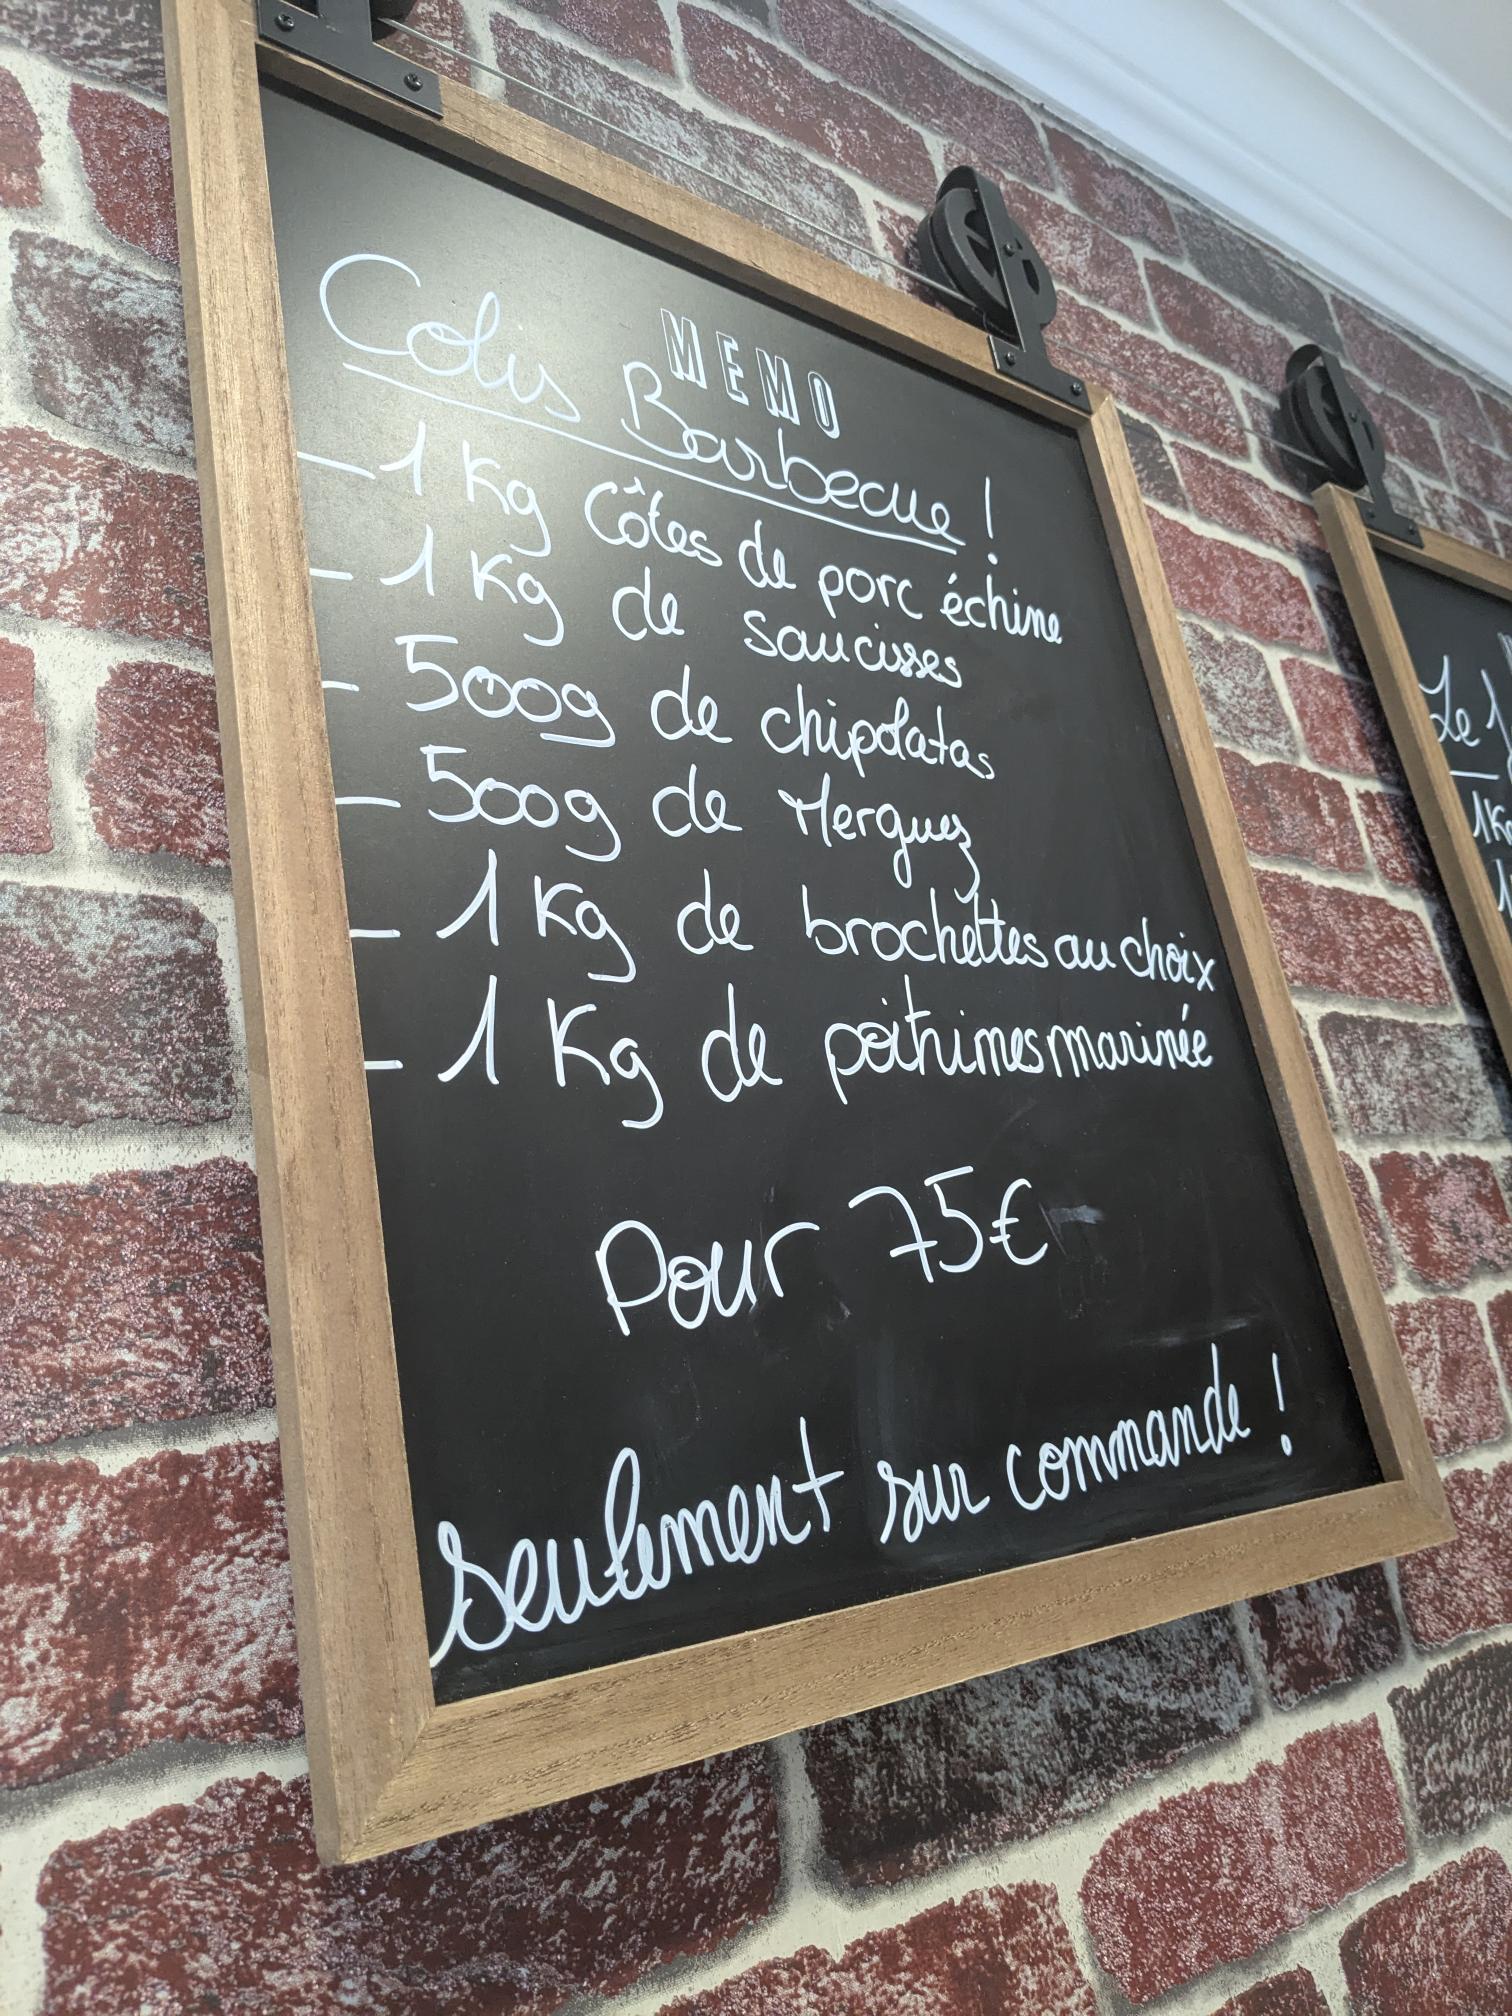 MEMO
Colis Barbecue !
- 1 Kg Côtes de porc échine
- 1 Kg de saucisses
- 500g de chipolatas
- 500g de Merguez
- 1 Kg de brochettes au choix
- 1 Kg de poitrines marinée
Pour 75€
seulement sur commande !
Le
1Kg